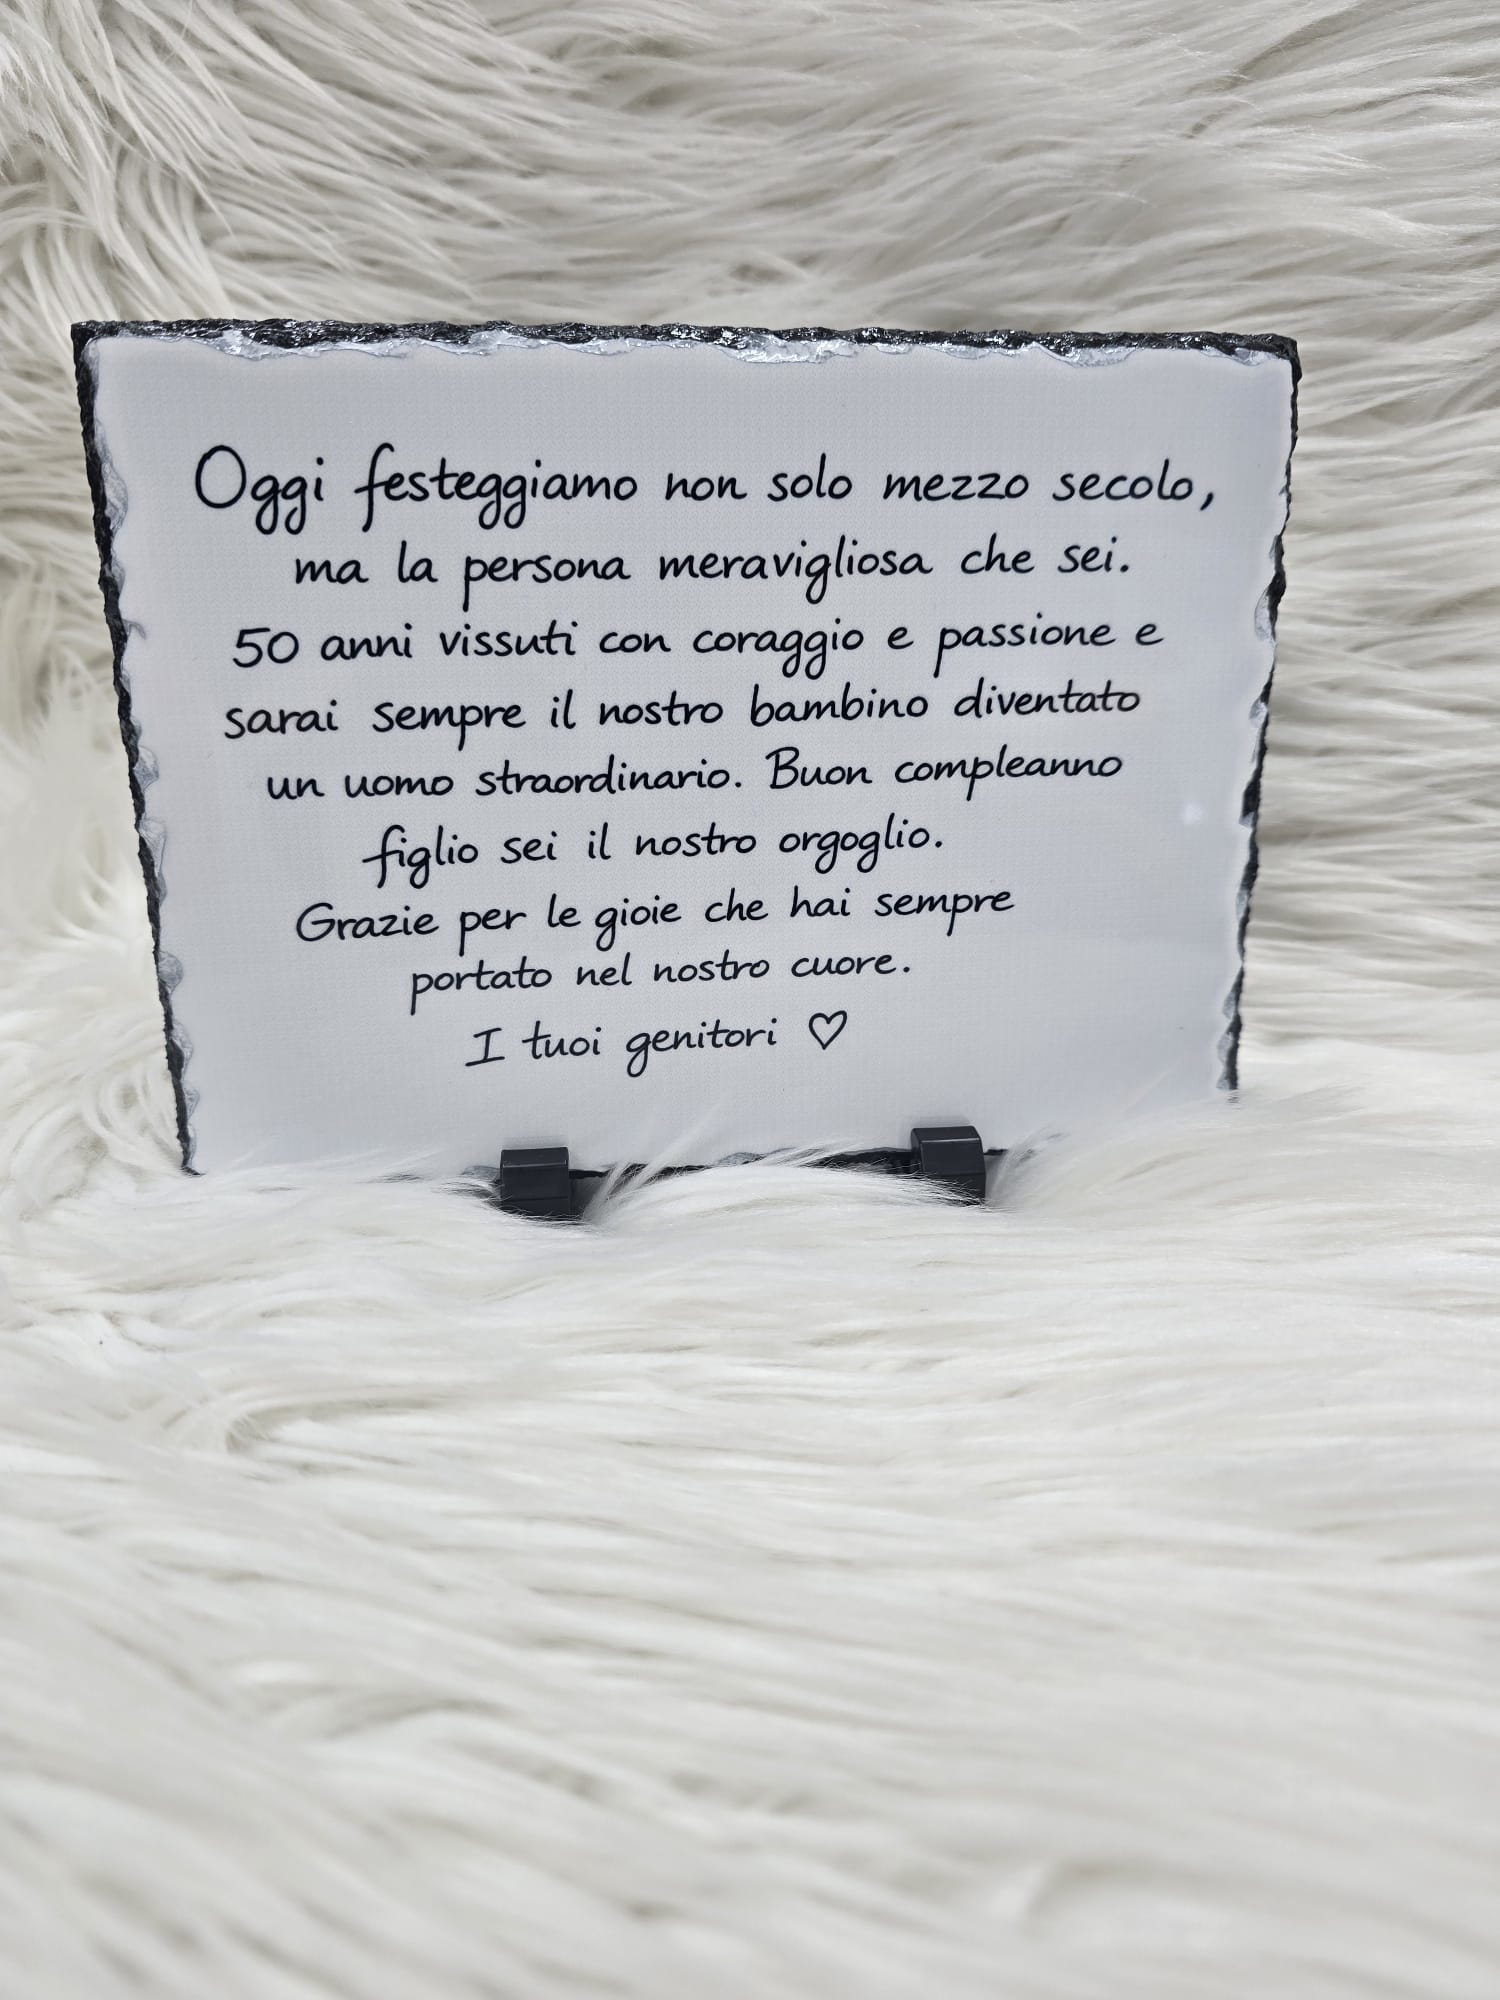 Oggi festeggiamo non solo mezzo secolo,
ma la persona meravigliosa che sei.
50 anni vissuti con coraggio e passione e
sarai sempre il nostro bambino diventato
un uomo straordinario. Buon compleanno
figlio sei il nostro orgoglio.
Grazie per le gioie che hai sempre
portato nel nostro cuore.
I tuoi genitori ♡